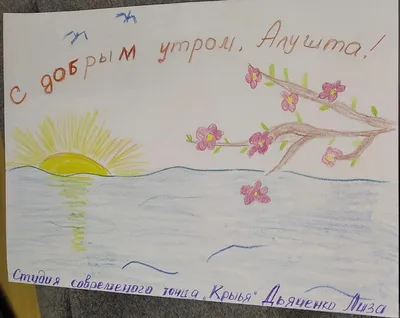 С добрым утром, Алушта!
Студия современого тонца „Крыья" Дьяченко Лиза